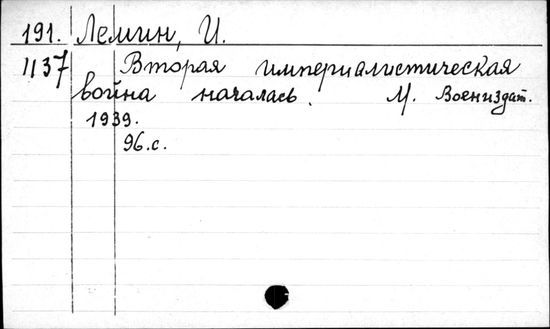 191. Лемин, И.
1137 Вторая империалистическая
война началась. М. Воениздат.
1939.
96.с.